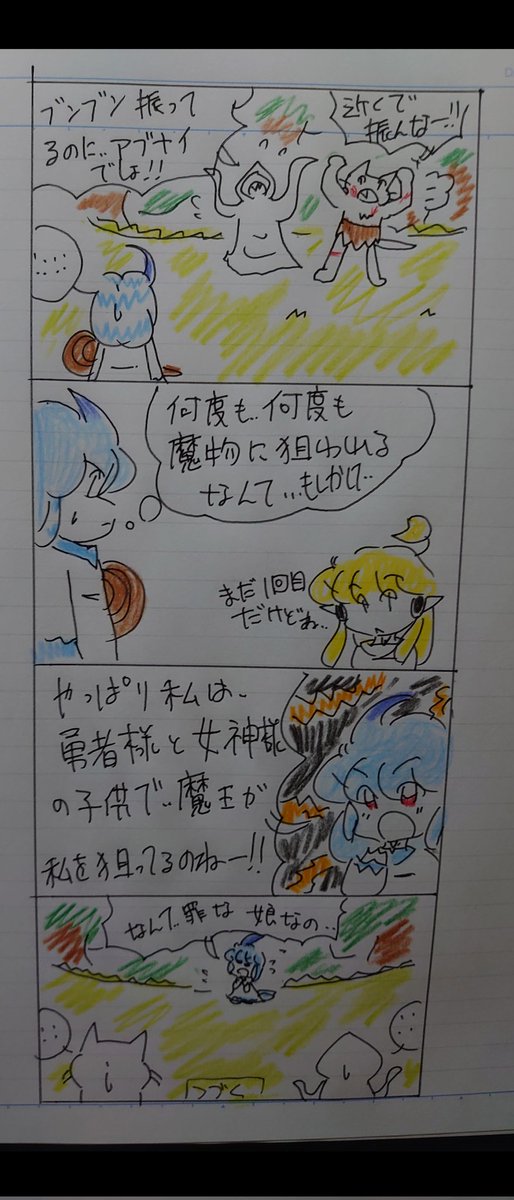 近くで
振んなー!!
ブンブン振って
るのに…アブナイ
でしょ!!
何度も…何度も
魔物に狙われる
なんて…もしかして…
まだ1回目
だけどね…
やっぱり私は…
勇者様と女神様
の子供で…魔王が
私を狙ってるのねー!!
なんて罪な娘なの…
つづく